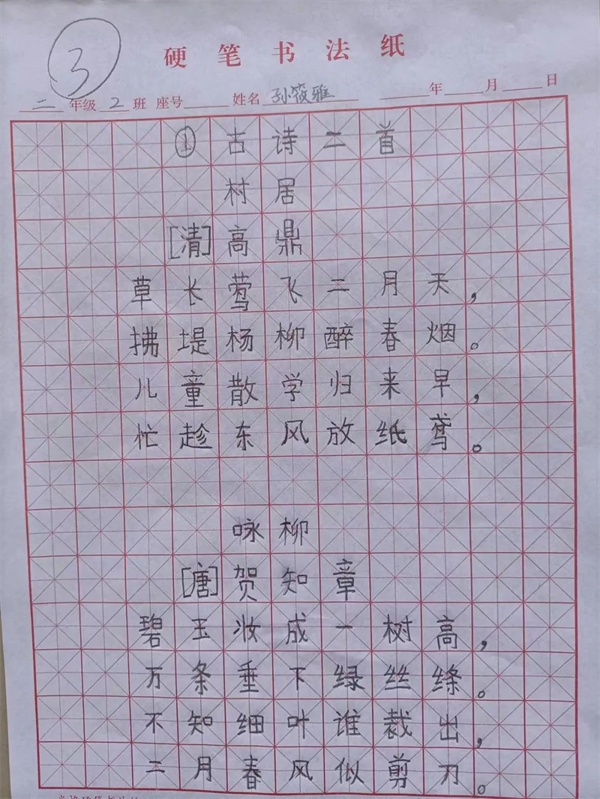 3
硬笔书法纸
二年级2班 座号 姓名 孙筱雅 年 月 日
①古诗二首
村居
[清]高鼎
草长莺飞二月天，
拂堤杨柳醉春烟。
儿童散学归来早，
忙趁东风放纸鸢。
咏柳
[唐]贺知章
碧玉妆成一树高，
万条垂下绿丝绦。
不知细叶谁裁出，
二月春风似剪刀。